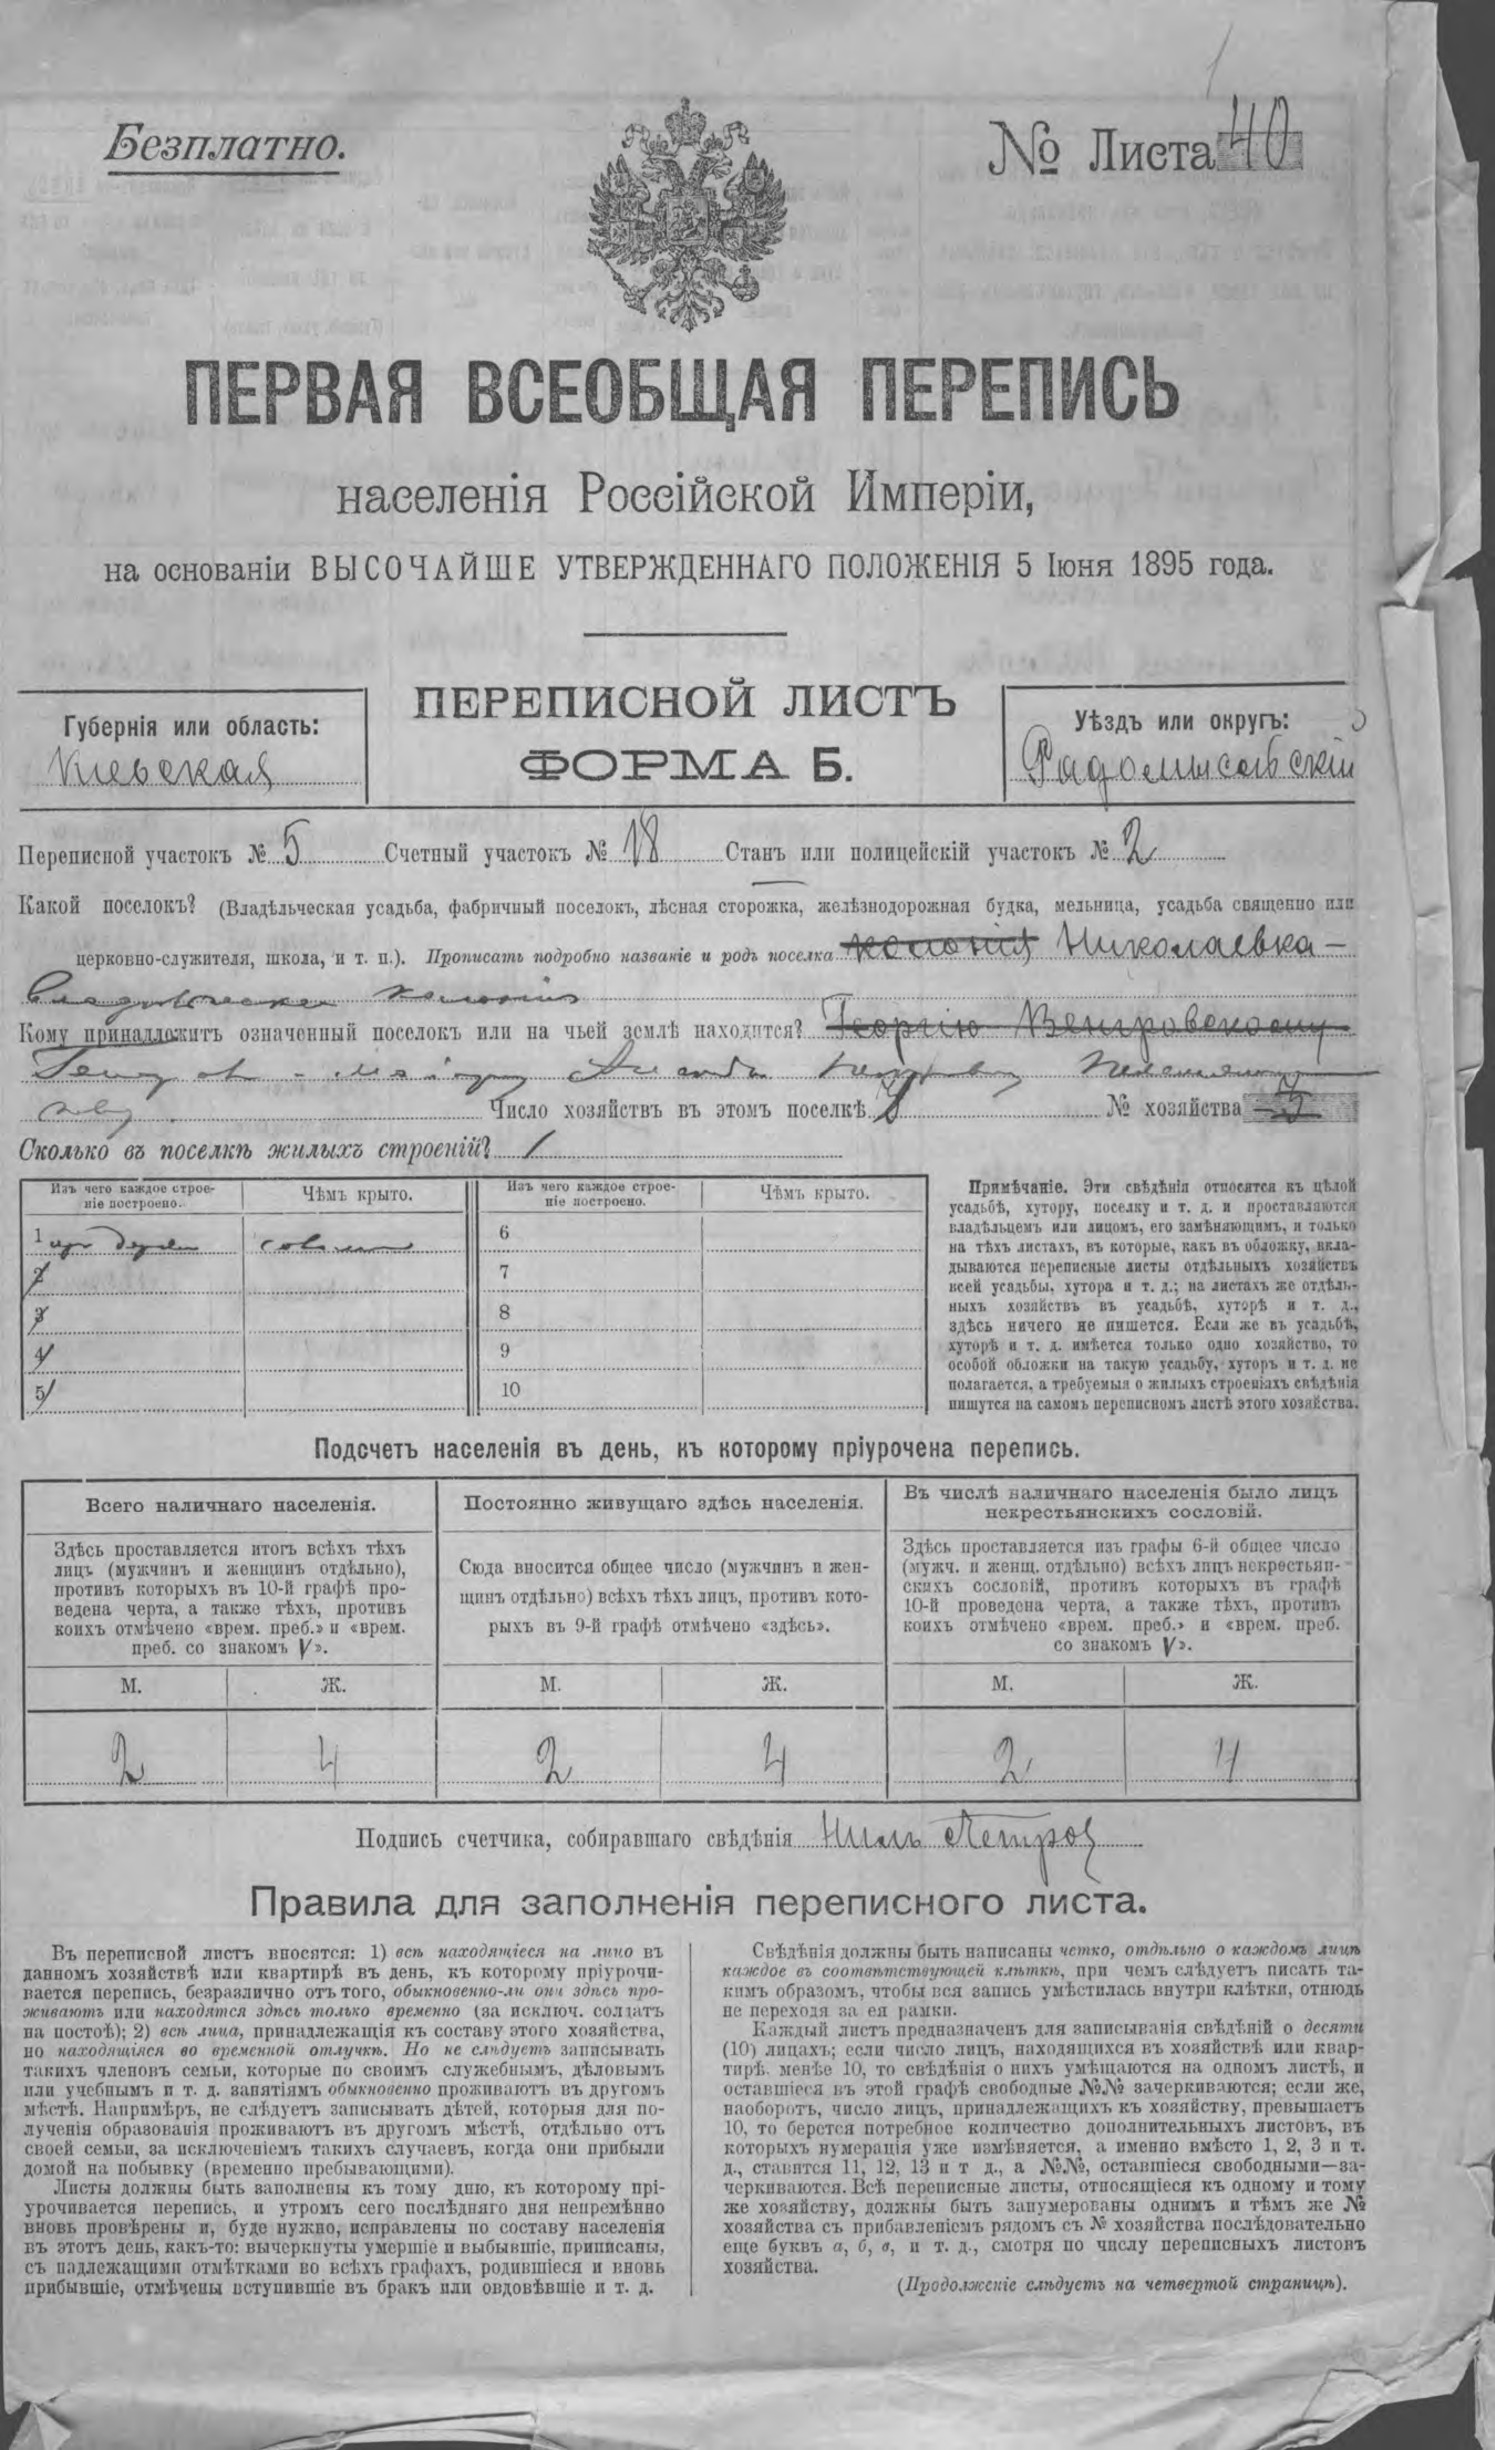 Безплатно.
№ Листа 40
ПЕРВАЯ ВСЕОБЩАЯ ПЕРЕПИСЬ
населенія Россійской Имперіи,
на основаніи ВЫСОЧАЙШЕ УТВЕРЖДЕННАГО ПОЛОЖЕНІЯ 5 Іюня 1895 года.
ПЕРЕПИСНОЙ ЛИСТЪ
ФОРМА Б.
Губернія или область:
Кіевская
Уѣздъ или округъ:
Радомысльскій
Переписной участокъ № 5 Счетный участокъ № 18 Станъ или полицейскій участокъ № 2
Какой поселокъ? (Владѣльческая усадьба, фабричный поселокъ, лѣсная сторожка, желѣзнодорожная будка, мельница, усадьба священно или
церковно-служителя, школа, и т. п.). Прописать подробно названіе и родъ поселка колонія Николаевка –
Владѣльческая колонія
Кому принадлежитъ означенный поселокъ или на чьей землѣ находится? Георгію Венгровскому
Число хозяйствъ въ этомъ поселкѣ 8 № хозяйства 5
Сколько въ поселкѣ жилыхъ строеній? 1
Изъ чего каждое строеніе построено. Чѣмъ крыто. Изъ чего каждое строеніе построено. Чѣмъ крыто.
1 изъ дерева соломой 6
2 7
3 8
4 9
5 10
Примѣчаніе. Эти свѣдѣнія относятся къ цѣлой
усадьбѣ, хутору, поселку и т. д. и проставляются
владѣльцемъ или лицомъ, его замѣняющимъ, и только
на тѣхъ листахъ, въ которые, какъ въ обложку, вкла-
дываются переписные листы отдѣльныхъ хозяйствъ
всей усадьбы, хутора и т. д.; на листахъ же отдѣль-
ныхъ хозяйствъ въ усадьбѣ, хуторѣ и т. д.,
здѣсь ничего не пишется. Если же въ усадьбѣ,
хуторѣ и т. д. имѣется только одно хозяйство, то
особой обложки на такую усадьбу, хуторъ и т. д. не
полагается, а требуемыя о жилыхъ строеніяхъ свѣдѣнія
пишутся на самомъ переписномъ листѣ этого хозяйства.
Подсчетъ населенія въ день, къ которому пріурочена перепись.
Всего наличнаго населенія.
Здѣсь проставляется итогъ всѣхъ тѣхъ
лицъ (мужчинъ и женщинъ отдѣльно),
противъ которыхъ въ 10-й графѣ про-
ведена черта, а также тѣхъ, противъ
коихъ отмѣчено «врем. преб.» и «врем.
преб. со знакомъ V».
Постоянно живущаго здѣсь населенія.
Сюда вносится общее число (мужчинъ и жен-
щинъ отдѣльно) всѣхъ тѣхъ лицъ, противъ кото-
рыхъ въ 9-й графѣ отмѣчено «здѣсь».
Въ числѣ наличнаго населенія было лицъ
некрестьянскихъ сословій.
Здѣсь проставляется изъ графы 6-й общее число
(мужч. и женщ. отдѣльно) всѣхъ лицъ некрестьян-
скихъ сословій, противъ которыхъ въ графѣ
10-й проведена черта, а также тѣхъ, противъ
коихъ отмѣчено «врем. преб.» и «врем. преб.
со знакомъ V».
М. Ж. М. Ж. М. Ж.
2 4 2 4 2 4
Подпись счетчика, собиравшаго свѣдѣнія Нилъ Петров
Правила для заполненія переписного листа.
Въ переписной листъ вносятся: 1) всѣ находящіеся на лицо въ
данномъ хозяйствѣ или квартирѣ въ день, къ которому пріурочи-
вается перепись, безразлично отъ того, обыкновенно-ли они здѣсь про-
живаютъ или находятся здѣсь только временно (за исключ. солдатъ
на постоѣ); 2) всѣ лица, принадлежащія къ составу этого хозяйства,
но находящіяся во временной отлучкѣ. Но не слѣдуетъ записывать
такихъ членовъ семьи, которые по своимъ служебнымъ, дѣловымъ
или учебнымъ и т. д. занятіямъ обыкновенно проживаютъ въ другомъ
мѣстѣ. Напримѣръ, не слѣдуетъ записывать дѣтей, которыя для по-
лученія образованія проживаютъ въ другомъ мѣстѣ, отдѣльно отъ
своей семьи, за исключеніемъ такихъ случаевъ, когда они прибыли
домой на побывку (временно пребывающими).
Листы должны быть заполнены къ тому дню, къ которому прі-
урочивается перепись, и утромъ сего послѣдняго дня непремѣнно
вновь провѣрены и, буде нужно, исправлены по составу населенія
въ этотъ день, какъ-то: вычеркнуты умершіе и выбывшіе, приписаны,
съ надлежащими отмѣтками во всѣхъ графахъ, родившіеся и вновь
прибывшіе, отмѣчены вступившіе въ бракъ или овдовѣвшіе и т. д.
Свѣдѣнія должны быть написаны четко, отдѣльно о каждомъ лицѣ
каждое въ соотвѣтствующей клѣткѣ, при чемъ слѣдуетъ писать та-
кимъ образомъ, чтобы вся запись умѣстилась внутри клѣтки, отнюдь
не переходя за ея рамки.
Каждый листъ предназначенъ для записыванія свѣдѣній о десяти
(10) лицахъ; если число лицъ, находящихся въ хозяйствѣ или квар-
тирѣ менѣе 10, то свѣдѣнія о нихъ умѣщаются на одномъ листѣ, и
оставшіеся въ этой графѣ свободные №№ зачеркиваются; если же,
наоборотъ, число лицъ, принадлежащихъ къ хозяйству, превышаетъ
10, то берется потребное количество дополнительныхъ листовъ, въ
которыхъ нумерація уже измѣняется, а именно вмѣсто 1, 2, 3 и т.
д., ставятся 11, 12, 13 и т д., а №№, оставшіеся свободными—за-
черкиваются. Всѣ переписные листы, относящіеся къ одному и тому
же хозяйству, должны быть занумерованы однимъ и тѣмъ же №
хозяйства съ прибавленіемъ рядомъ съ № хозяйства послѣдовательно
еще буквъ а, б, в, и т. д., смотря по числу переписныхъ листовъ
хозяйства.
(Продолженіе слѣдуетъ на четвертой страницѣ).